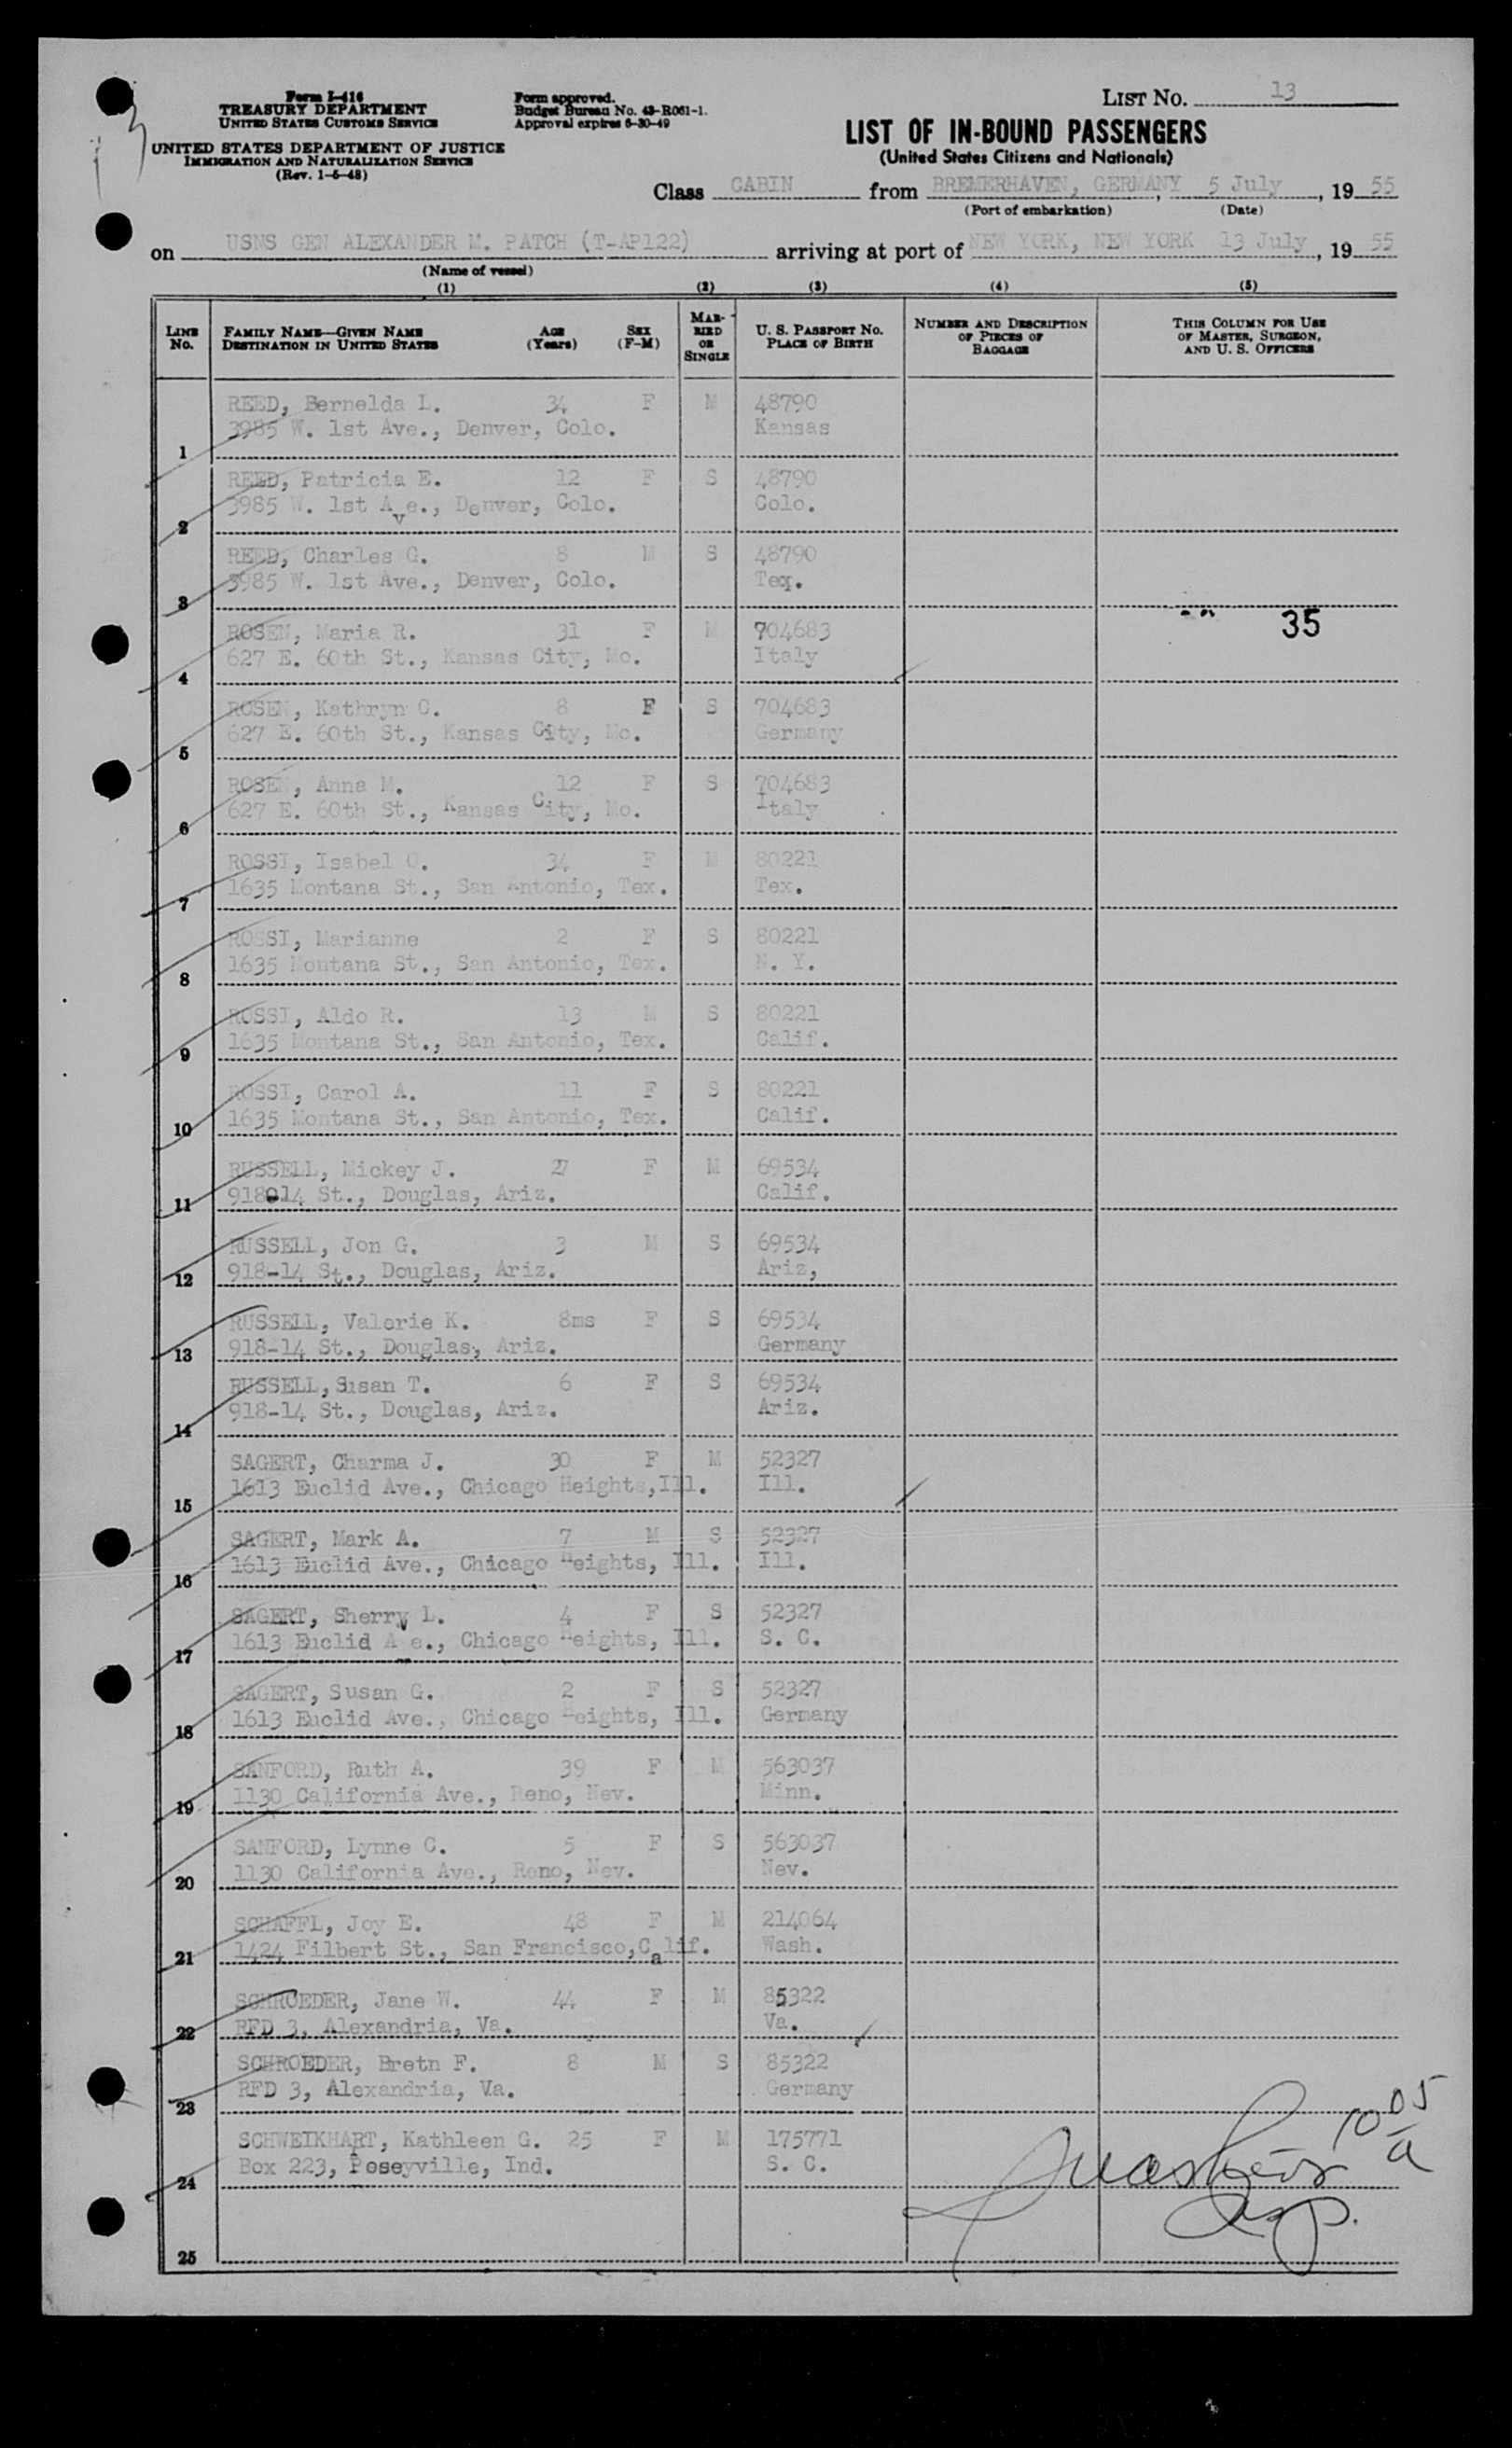 Form I-416
TREASURY DEPARTMENT
UNITED STATES CUSTOMS SERVICE
UNITED STATES DEPARTMENT OF JUSTICE
IMMIGRATION AND NATURALIZATION SERVICE
(Rev. 1-5-48)
Form approved.
Budget Bureau No. 43-R061-1.
Approval expires 6-30-49
LIST NO. 13
LIST OF IN-BOUND PASSENGERS
(United States Citizens and Nationals)
Class CABIN from BREMERHAVEN, GERMANY, 5 July, 19 55
(Port of embarkation) (Date)
on USNS GEN ALEXANDER M. PATCH (T-AP122) arriving at port of NEW YORK, NEW YORK 13 July, 19 55
(Name of vessel)
(1) (2) (3) (4) (5)
LINE NO. FAMILY NAME—GIVEN NAME DESTINATION IN UNITED STATES AGE (Years) SEX (F-M) MARRIED OR SINGLE U. S. PASSPORT NO. PLACE OF BIRTH NUMBER AND DESCRIPTION OF PIECES OF BAGGAGE THIS COLUMN FOR USE OF MASTER, SURGEON, AND U. S. OFFICERS
REED, Bernelda L. 34 F M 48790
1 3985 W. 1st Ave., Denver, Colo. Kansas
REED, Patricia E. 12 F S 48790
2 3985 W. 1st Ave., Denver, Colo. Colo.
REED, Charles G. 8 M S 48790
3 3985 W. 1st Ave., Denver, Colo. Tex.
35
ROSEN, Maria R. 31 F M 704683
4 627 E. 60th St., Kansas City, Mo. Italy
ROSEN, Kathryn C. 8 F S 704683
5 627 E. 60th St., Kansas City, Mo. Germany
ROSEN, Anna M. 12 F S 704683
6 627 E. 60th St., Kansas City, Mo. Italy
ROSSI, Isabel O. 34 F M 80221
7 1635 Montana St., San Antonio, Tex. Tex.
ROSSI, Marianne 2 F S 80221
8 1635 Montana St., San Antonio, Tex. N. Y.
ROSSI, Aldo R. 13 M S 80221
9 1635 Montana St., San Antonio, Tex. Calif.
ROSSI, Carol A. 11 F S 80221
10 1635 Montana St., San Antonio, Tex. Calif.
RUSSELL, Mickey J. 27 F M 69534
11 918-14 St., Douglas, Ariz. Calif.
RUSSELL, Jon G. 3 M S 69534
12 918-14 St., Douglas, Ariz. Ariz,
RUSSELL, Valerie K. 8ms F S 69534
13 918-14 St., Douglas, Ariz. Germany
RUSSELL, Susan T. 6 F S 69534
14 918-14 St., Douglas, Ariz. Ariz.
SAGERT, Charma J. 30 F M 52327
15 1613 Euclid Ave., Chicago Heights,Ill. Ill.
SAGERT, Mark A. 7 M S 52327
16 1613 Euclid Ave., Chicago Heights, Ill. Ill.
SAGERT, Sherry L. 4 F S 52327
17 1613 Euclid Ave., Chicago Heights, Ill. S. C.
SAGERT, Susan G. 2 F S 52327
18 1613 Euclid Ave., Chicago Heights, Ill. Germany
SANFORD, Ruth A. 39 F M 563037
19 1130 California Ave., Reno, Nev. Minn.
SANFORD, Lynne C. 5 F S 563037
20 1130 California Ave., Reno, Nev. Nev.
SCHAFFL, Joy E. 48 F M 214064
21 1424 Filbert St., San Francisco,Calif. Wash.
SCHROEDER, Jane W. 44 F M 85322
22 RFD 3, Alexandria, Va. Va.
SCHROEDER, Bretn F. 8 M S 85322
23 RFD 3, Alexandria, Va. Germany
SCHWEIKHART, Kathleen G. 25 F M 175771
24 Box 223, Poseyville, Ind. S. C.
10 05 a
25